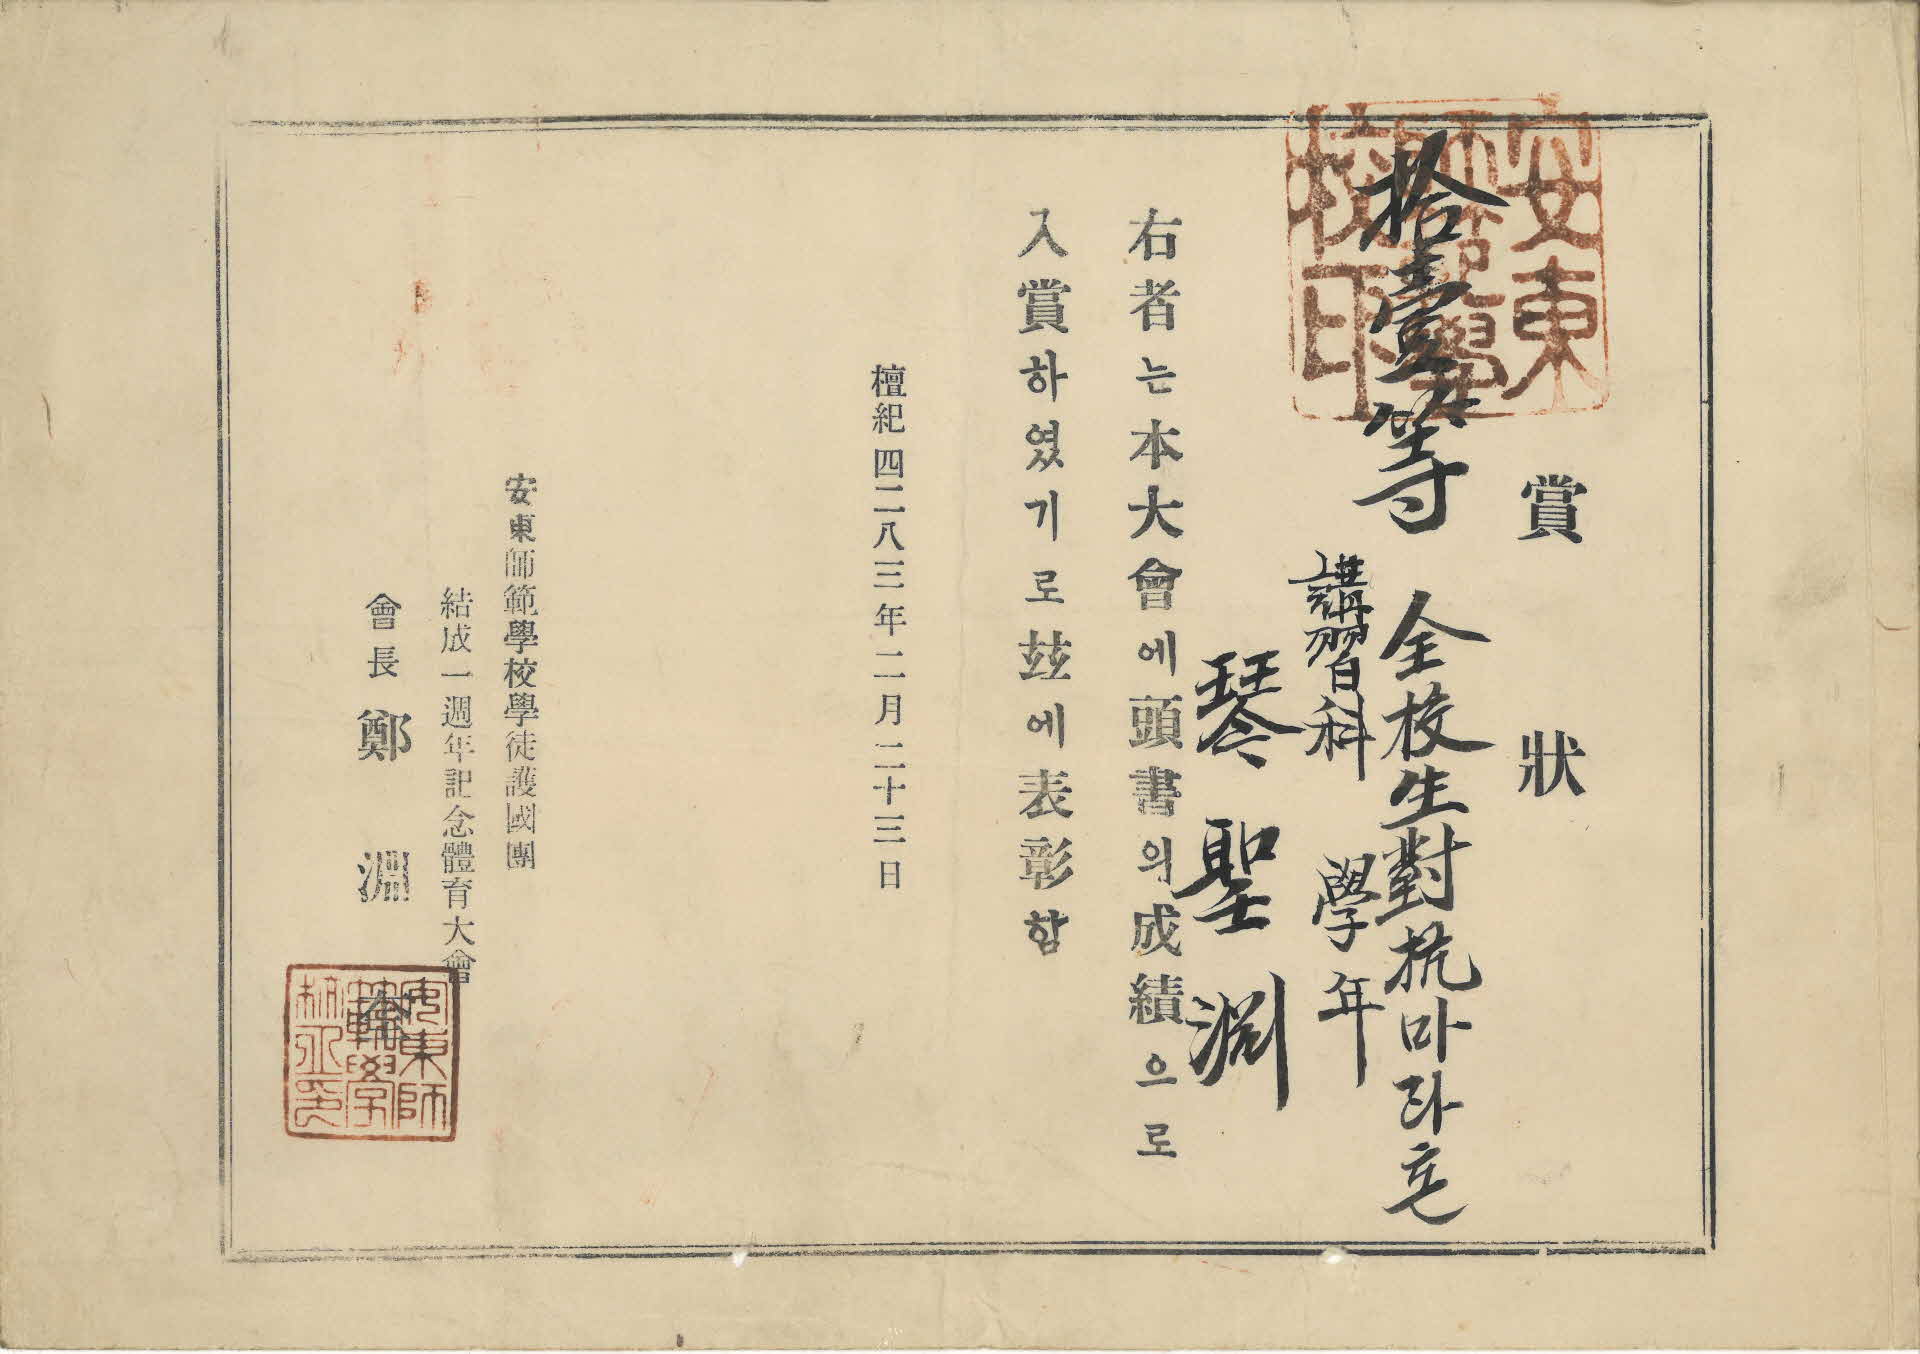 賞狀
拾壹等 全校生對抗마라톤
講習科 學年
琴聖淵
右者는本大會에頭書의成績으로
入賞하였기로玆에表彰함
檀紀四二八三年二月二十三日
安東師範學校學徒護國團
結成一週年記念體育大會
會長 鄭淵
安東師範學校印